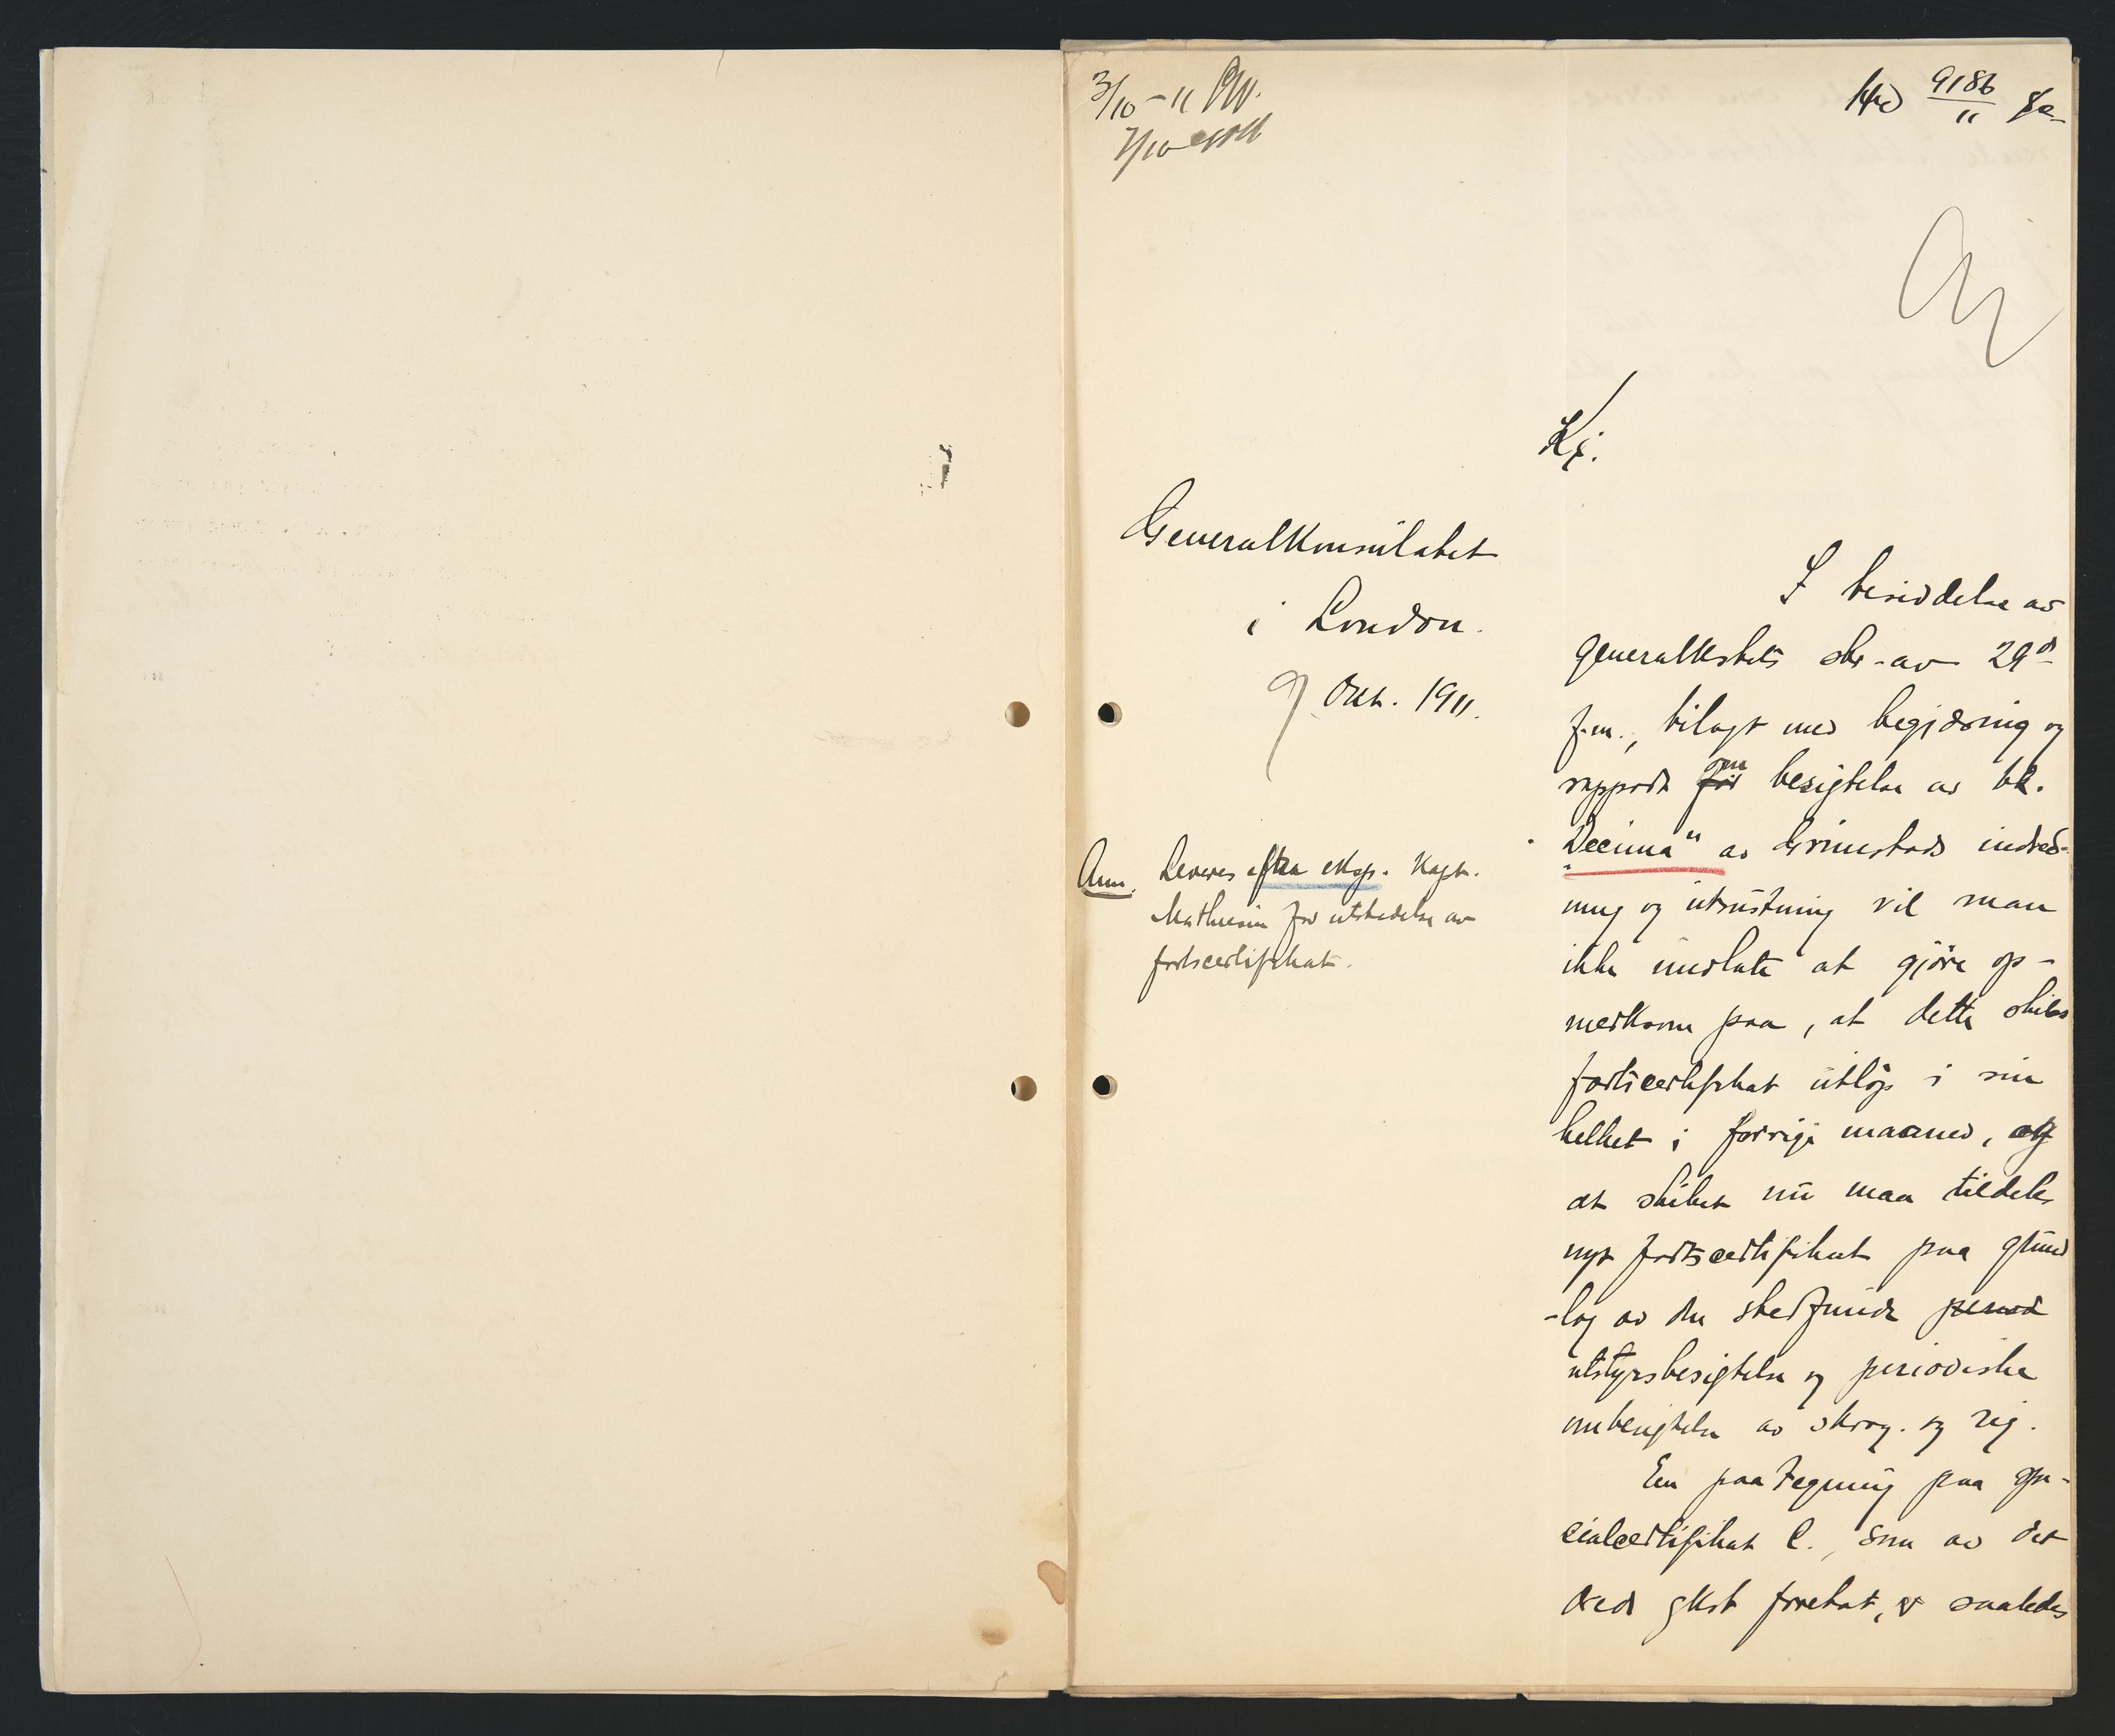 3/10 – 11
7/10
9186
11
Kj.
Generalkonsulatet
i London.
9 Okt. 1911.
Anm. Leveres efter eksp. Kapt.
Mathiesen for utstedelse av
fartscertifikat.
I besiddelse av
generalkstets skr. av 29d
f.m., bilagt med begjæring og
rapport for om besigtelse av bk.
"Decima" av Grimstads indred-
ning og utrustning vil man
ikke undlate at gjøre op-
merksom paa, at dette skibs
fartscertifikat utløp i sin
helhet i forrige maaned, og
at skibet nu maa tildeles
nyt fartscertifikat paa grund
-lag av den stedfundne period
utstyrsbesigtelse og periodiske
ombesigtelse av skrog. og rig.
En paategning paa spe-
cialcertifikat C., som av det
gkst foretat, er saaledes